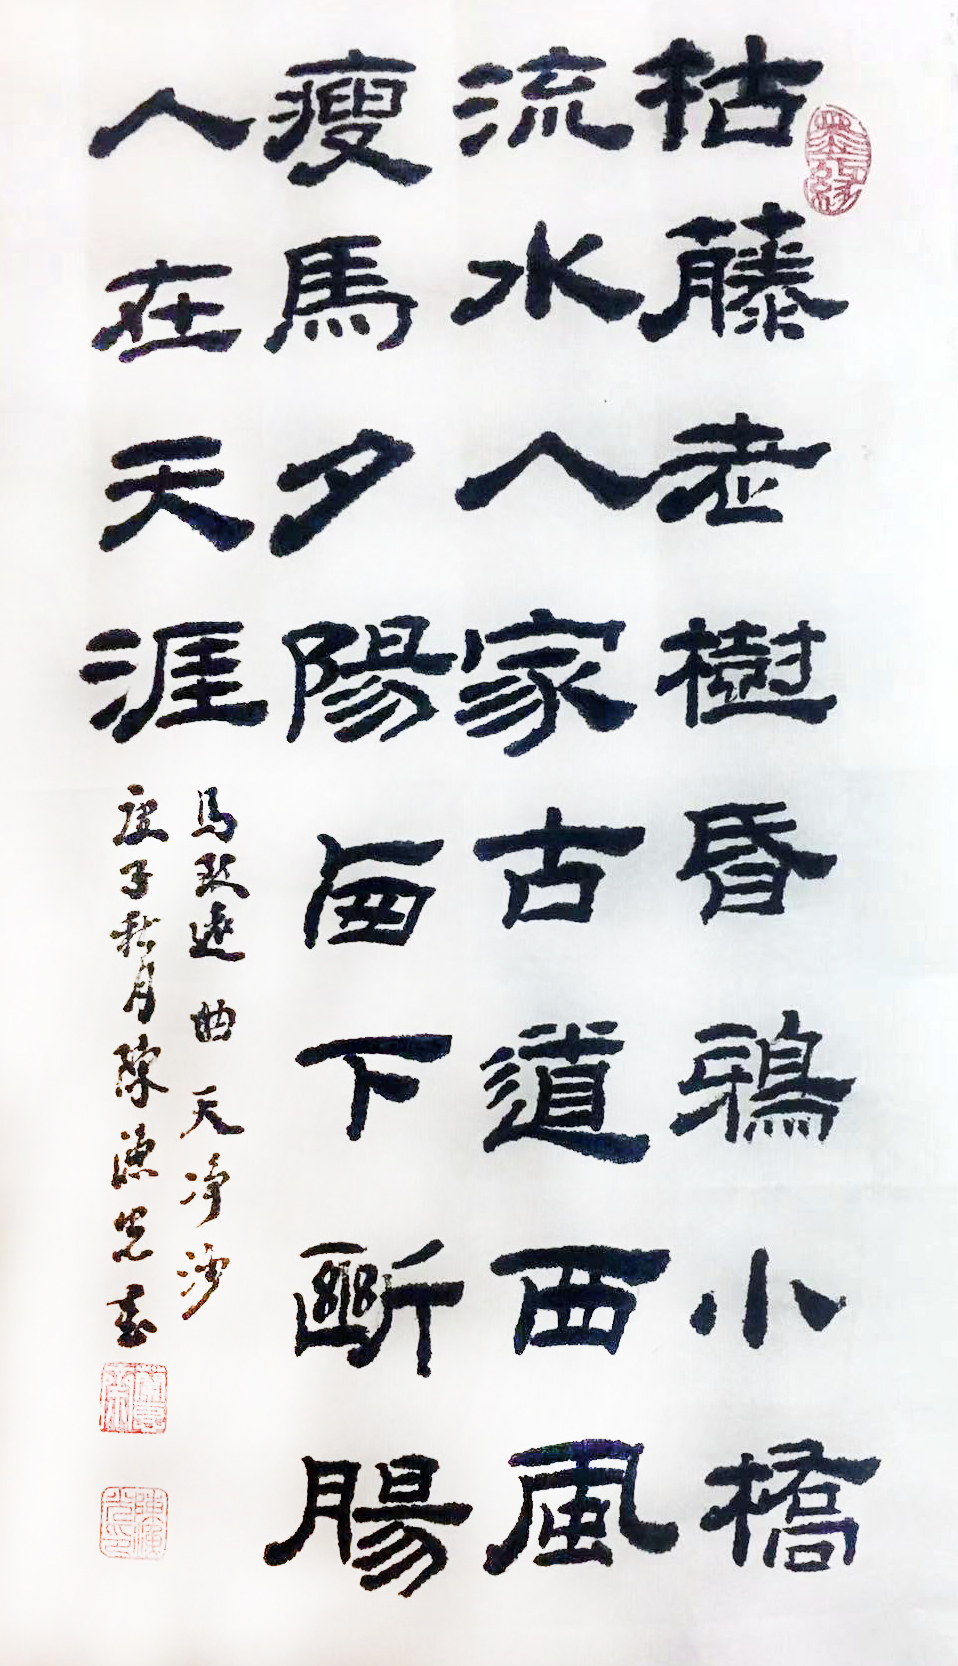 墨緣
枯藤老樹昏鴉小橋
流水人家古道西風
瘦馬夕陽西下斷腸
人在天涯
馬致遠 曲 天净沙
庚子秋月陳光書